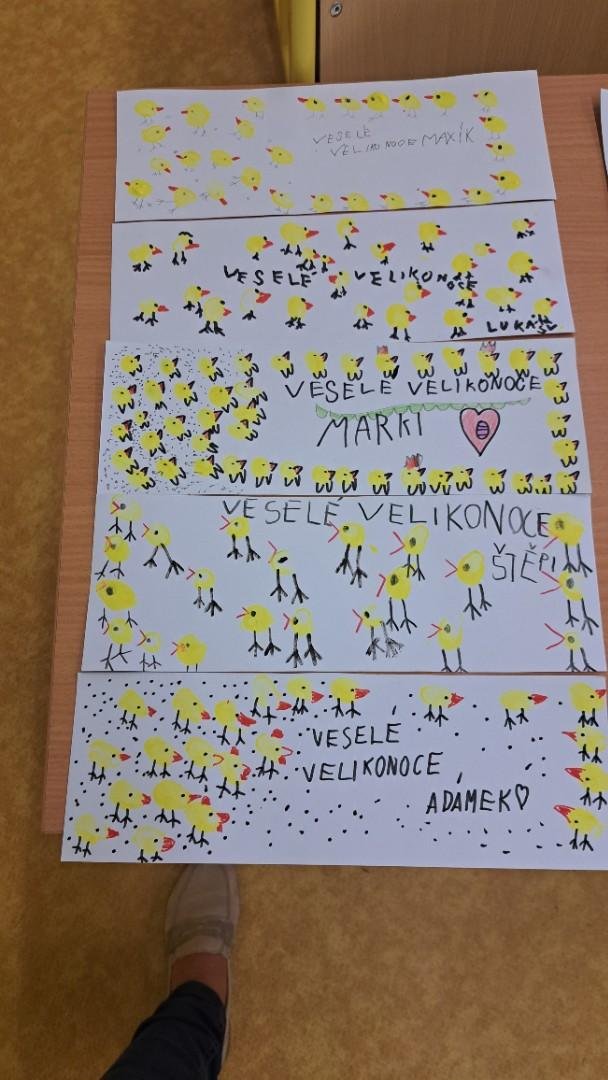 VESELÉ
VELIKONOCE MAXÍK
VESELÉ VELIKONOCE
LUKÁŠ
VESELÉ VELIKONOCE
MARKI
VESELÉ VELIKONOCE
ŠTĚPI
VESELÉ
VELIKONOCE
ADÁMEK♡